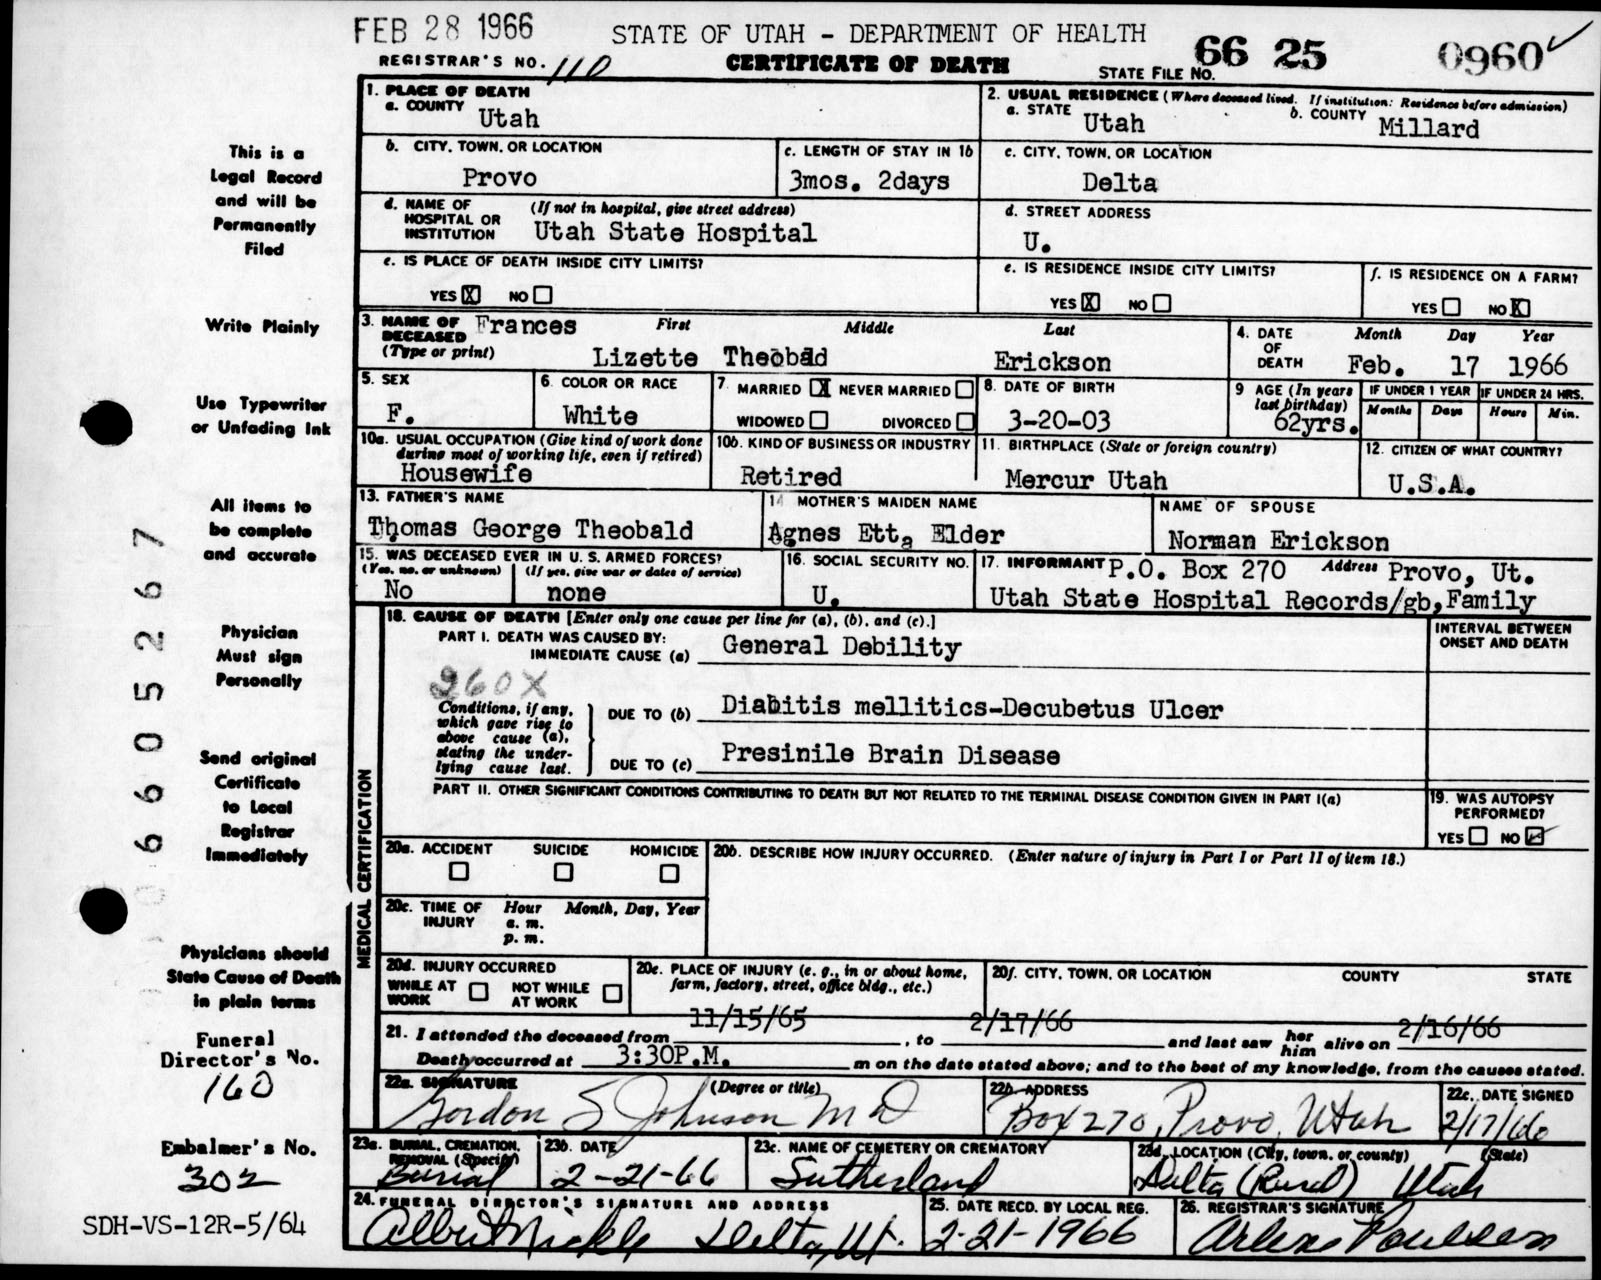 FEB 28 1966 STATE OF UTAH - DEPARTMENT OF HEALTH
REGISTRAR'S NO. 110 CERTIFICATE OF DEATH STATE FILE NO. 66 25 0960
1. PLACE OF DEATH
a. COUNTY Utah
2. USUAL RESIDENCE (Where deceased lived. If institution: Residence before admission)
a. STATE Utah b. COUNTY Millard
b. CITY, TOWN, OR LOCATION Provo
c. LENGTH OF STAY IN 1b 3mos. 2days
c. CITY, TOWN, OR LOCATION Delta
d. NAME OF HOSPITAL OR INSTITUTION (If not in hospital, give street address) Utah State Hospital
d. STREET ADDRESS U.
e. IS PLACE OF DEATH INSIDE CITY LIMITS?
YES X NO
e. IS RESIDENCE INSIDE CITY LIMITS?
YES X NO
f. IS RESIDENCE ON A FARM?
YES NO X
3. NAME OF DECEASED (Type or print) First Middle Last
Frances Lizette Theobad Erickson
4. DATE OF DEATH Month Day Year
Feb. 17 1966
5. SEX F.
6. COLOR OR RACE White
7. MARRIED X NEVER MARRIED
WIDOWED DIVORCED
8. DATE OF BIRTH 3-20-03
9 AGE (In years last birthday) 62yrs.
IF UNDER 1 YEAR Months Days
IF UNDER 24 HRS. Hours Min.
10a. USUAL OCCUPATION (Give kind of work done during most of working life, even if retired) Housewife
10b. KIND OF BUSINESS OR INDUSTRY Retired
11. BIRTHPLACE (State or foreign country) Mercur Utah
12. CITIZEN OF WHAT COUNTRY? U.S.A.
13. FATHER'S NAME Thomas George Theobald
14 MOTHER'S MAIDEN NAME Agnes Etta Elder
NAME OF SPOUSE Norman Erickson
15. WAS DECEASED EVER IN U. S. ARMED FORCES?
(Yes, no, or unknown) No
(If yes, give war or dates of service) none
16. SOCIAL SECURITY NO. U.
17. INFORMANT P.O. Box 270 Address Provo, Ut.
Utah State Hospital Records/gb,Family
MEDICAL CERTIFICATION
18. CAUSE OF DEATH [Enter only one cause per line for (a), (b), and (c).]
INTERVAL BETWEEN ONSET AND DEATH
PART I. DEATH WAS CAUSED BY:
IMMEDIATE CAUSE (a) General Debility
260X
Conditions, if any, which gave rise to above cause (a), stating the underlying cause last.
DUE TO (b) Diabitis mellitics-Decubetus Ulcer
DUE TO (c) Presinile Brain Disease
PART II. OTHER SIGNIFICANT CONDITIONS CONTRIBUTING TO DEATH BUT NOT RELATED TO THE TERMINAL DISEASE CONDITION GIVEN IN PART I(a)
19. WAS AUTOPSY PERFORMED?
YES NO ✓
20a. ACCIDENT SUICIDE HOMICIDE
20b. DESCRIBE HOW INJURY OCCURRED. (Enter nature of injury in Part I or Part II of item 18.)
20c. TIME OF INJURY Hour Month, Day, Year
a. m.
p. m.
20d. INJURY OCCURRED
WHILE AT WORK NOT WHILE AT WORK
20e. PLACE OF INJURY (e. g., in or about home, farm, factory, street, office bldg., etc.)
20f. CITY, TOWN, OR LOCATION COUNTY STATE
21. I attended the deceased from 11/15/65, to 2/17/66 and last saw her him alive on 2/16/66
Death occurred at 3:30P.M. m on the date stated above; and to the best of my knowledge, from the causes stated.
22a. SIGNATURE (Degree or title) Gordon S Johnson M D
22b. ADDRESS Box 270, Provo, Utah
22c. DATE SIGNED 2/17/66
23a. BURIAL, CREMATION, REMOVAL (Specify) Burial
23b. DATE 2-21-66
23c. NAME OF CEMETERY OR CREMATORY Sutherland
23d. LOCATION (City, town, or county) (State) Delta (Rural) Utah
24. FUNERAL DIRECTOR'S SIGNATURE AND ADDRESS Albert Nickle Delta, Ut.
25. DATE RECD. BY LOCAL REG. 2-21-1966
26. REGISTRAR'S SIGNATURE Arlene Poulsen
This is a
Legal Record
and will be
Permanently
Filed
Write Plainly
Use Typewriter
or Unfading Ink
All items to
be complete
and accurate
Physician
Must sign
Personally
Send original
Certificate
to Local
Registrar
Immediately
Physicians should
State Cause of Death
in plain terms
Funeral
Director's No.
160
Embalmer's No.
302
SDH-VS-12R-5/64
06605267